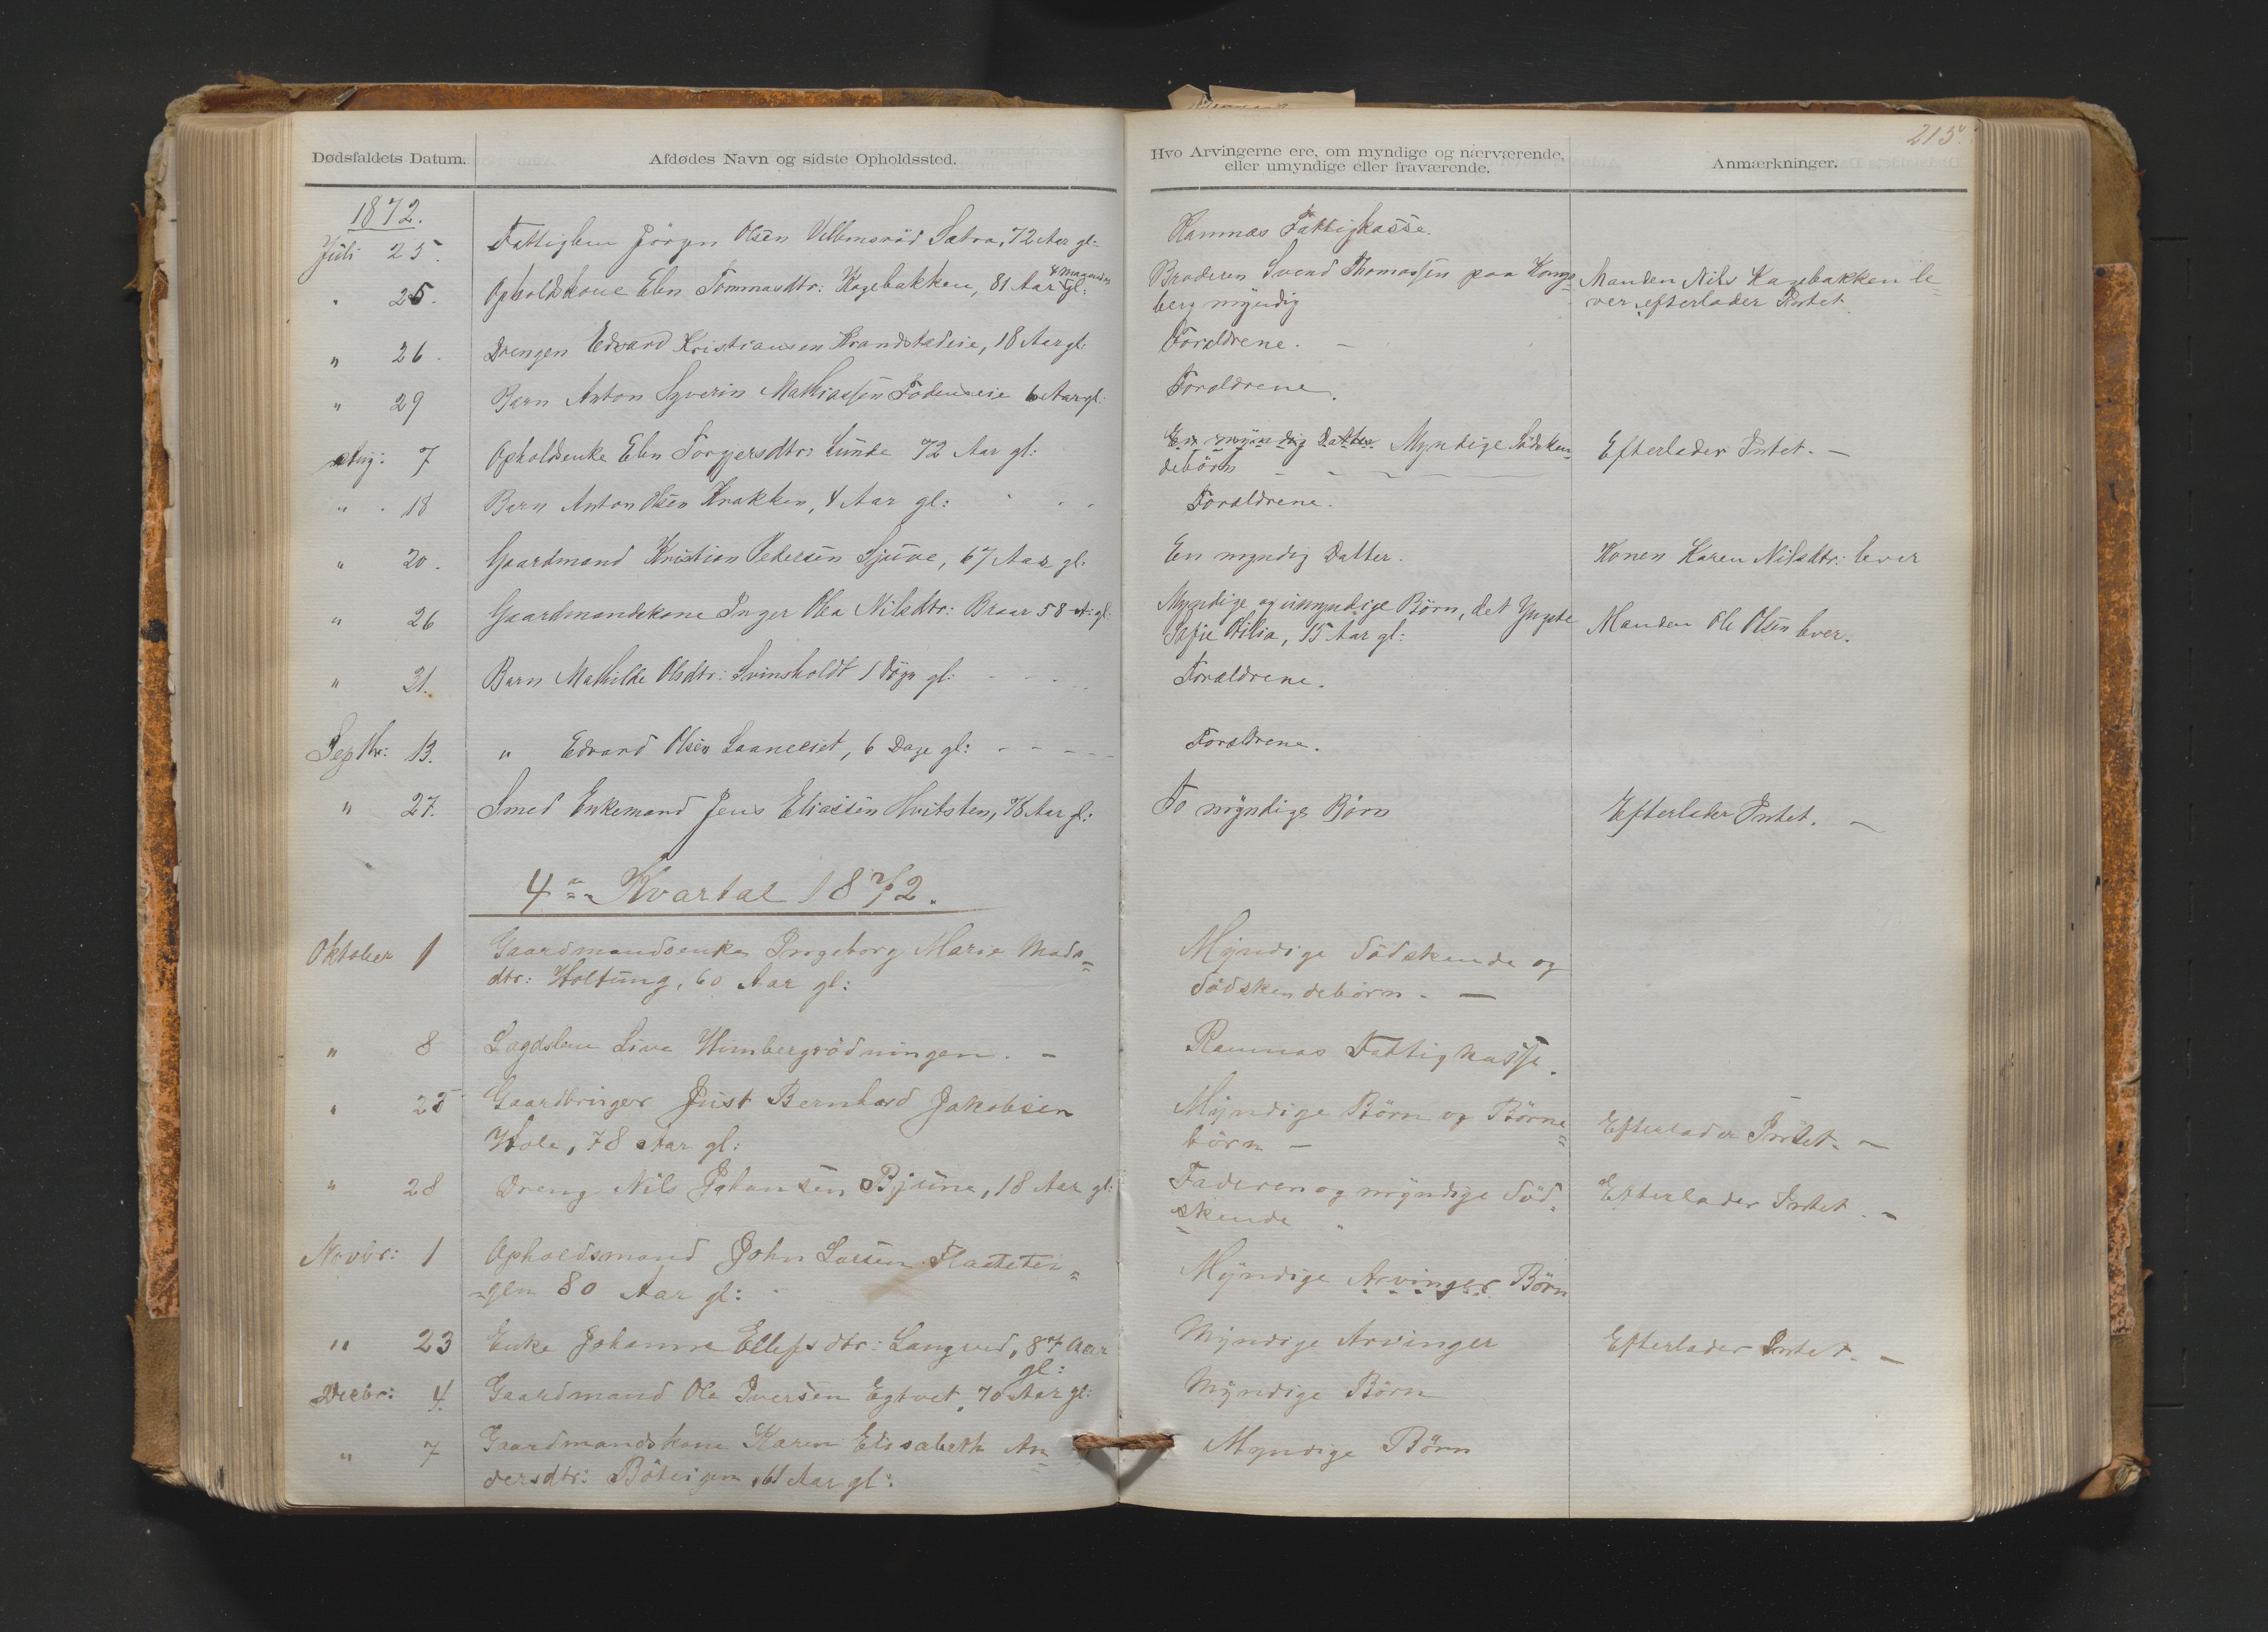 215
Dødsfaldets Datum.
Afdødes Navn og sidste Opholdssted.
Hvo Arvingerne ere, om myndige og nærværende,
eller umyndige eller fraværende.
Anmærkninger.
1872.
Juli 25. Fattiglem Jörgen Olsen Sætra, 72 Aar gl: Ramnæs Fattigkasse.
" 25. Opholdskone Elen Tommasdtr: Kagebakken, 81 Aar 4 Maaneder gl: Broderen Svend Thomassen paa Kongs= Manden Nils Kagebakken le=
berg myndig ver, efterlader Intet
" 26. Drengen Edvard Kristiansen Brandstadeie, 18 Aar gl: Forældrene. -
" 29 Barn Anton Syverin Mathiassen Fodeneie 6 Aar gl: Forældrene.
Aug: 7 Opholdsenke Elen Torgersdtr: Lunde 72 Aar gl: En myndig Datter Myndige Södsken= Efterlader Intet. -
debörn
" 18 Barn Anton Olsen Krakken, 4 Aar gl: Forældrene.
" 20. Gaardmand Kristian Pedersen Sjuve, 67 Aar gl. En myndig Datter. Konen Karen Nilsdtr: lever
" 26 Gaardmandskone Inger Olea Nilsdtr: Braar 58 A: gl: Myndige og umyndige Börn, det Yngste
Sofie Otilia, 15 Aar gl: Manden Ole Olsen lever.
" 21. Barn Mathilde Olsdtr: Svinsholdt 1 Dögn gl: Forældrene.
Septbr: 13. " Edvard Olsen Laaneeiet, 6 Dage gl: Forældrene.
" 27. Smed Enkemand Jens Eliassen Hvitsten, 76 Aar gl: To myndige Börn Efterlader Intet. -
4de Kvartal 1872.
Oktober 1 Gaardmandsenke Ingeborg Marie Mads= Myndige Södskende og
dtr: Holtung, 60 Aar gl: Södskendebörn. -
" 8 Lægdslem Live Himbergrödningen. - Ramnæs Fattigkasse.
" 25 Gaardbruger Just Bernhard Jakobsen Myndige Börn og Börne=
Hole, 78 Aar gl: börn - Efterlader Intet. -
" 28 Dreng Nils Johansen Bjune, 18 Aar gl: Faderen og myndige Söd= Efterlader Intet. -
skende
Novbr: 1 Opholdsmand John Larsen Flaatetei=
=gen 80 Aar gl: Myndige Arvinger Börn
" 23 Enke Johanne Ellefsdtr: Langved, 87 Aar Myndige Arvinger Efterlader Intet. -
gl:
Decbr: 4. Gaardmand Ole Iversen Egtvet, 70 Aar gl: Myndige Börn
" 7 Gaardmandskone Karen Elisabeth An= Myndige Börn
dersdtr: Böteigen, 61 Aar gl: